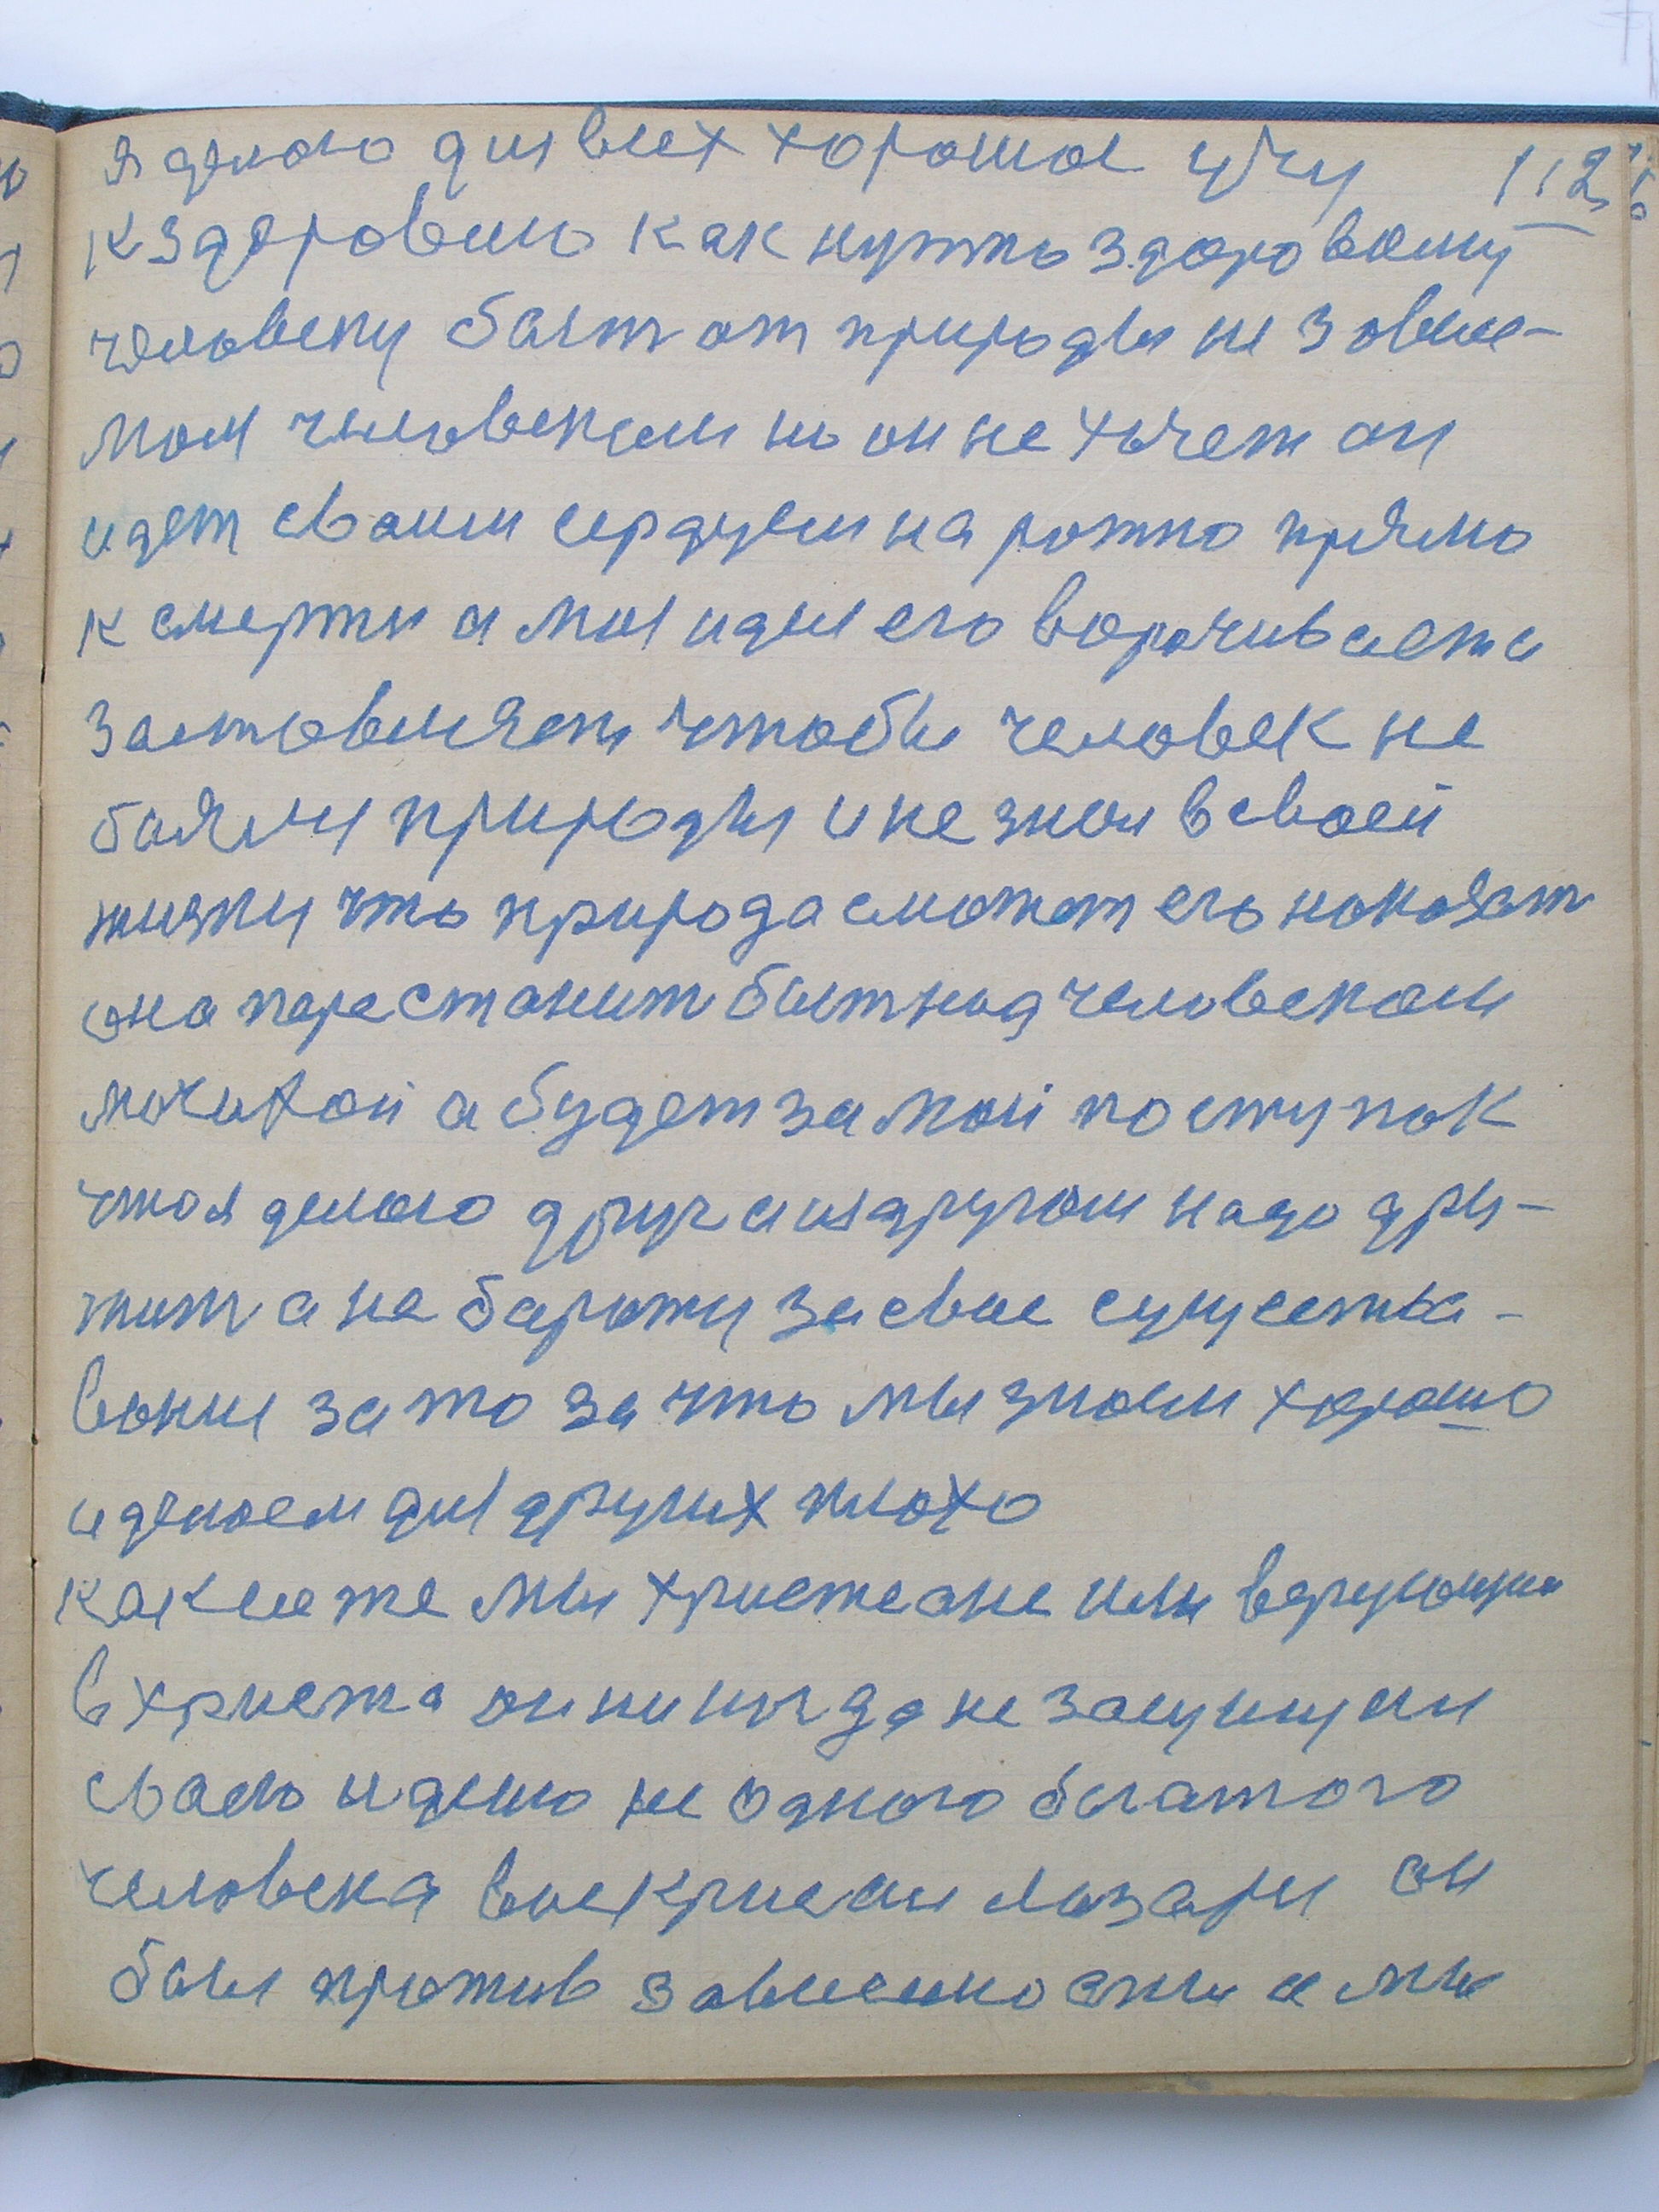 я делаю для всех хорошое учу 112
к здоровию как нужно здоровому
человеку быт от природы не зовиси-
мом человеком но он не хочет он
идет своим сердцем на рожно прямо
к смерти а моя идея его ворочивает и
застовляет чтобы человек не
боялся природы и не знал в своей
жизни что природа сможет его нокозат
она перестанит быт над человеком
мочихой а будет за мой поступок
что я делаю друг с ил другом надо дру-
жит а не боротц за свое сущиства-
воние за то за что мы знаем хорошо
и делаем для других плохо
какие же мы христеане или верующии
в христа он никогда не защищал
своею идеию не одного богатого
человека воскрисил лазаря он
был против зовисимости а мы